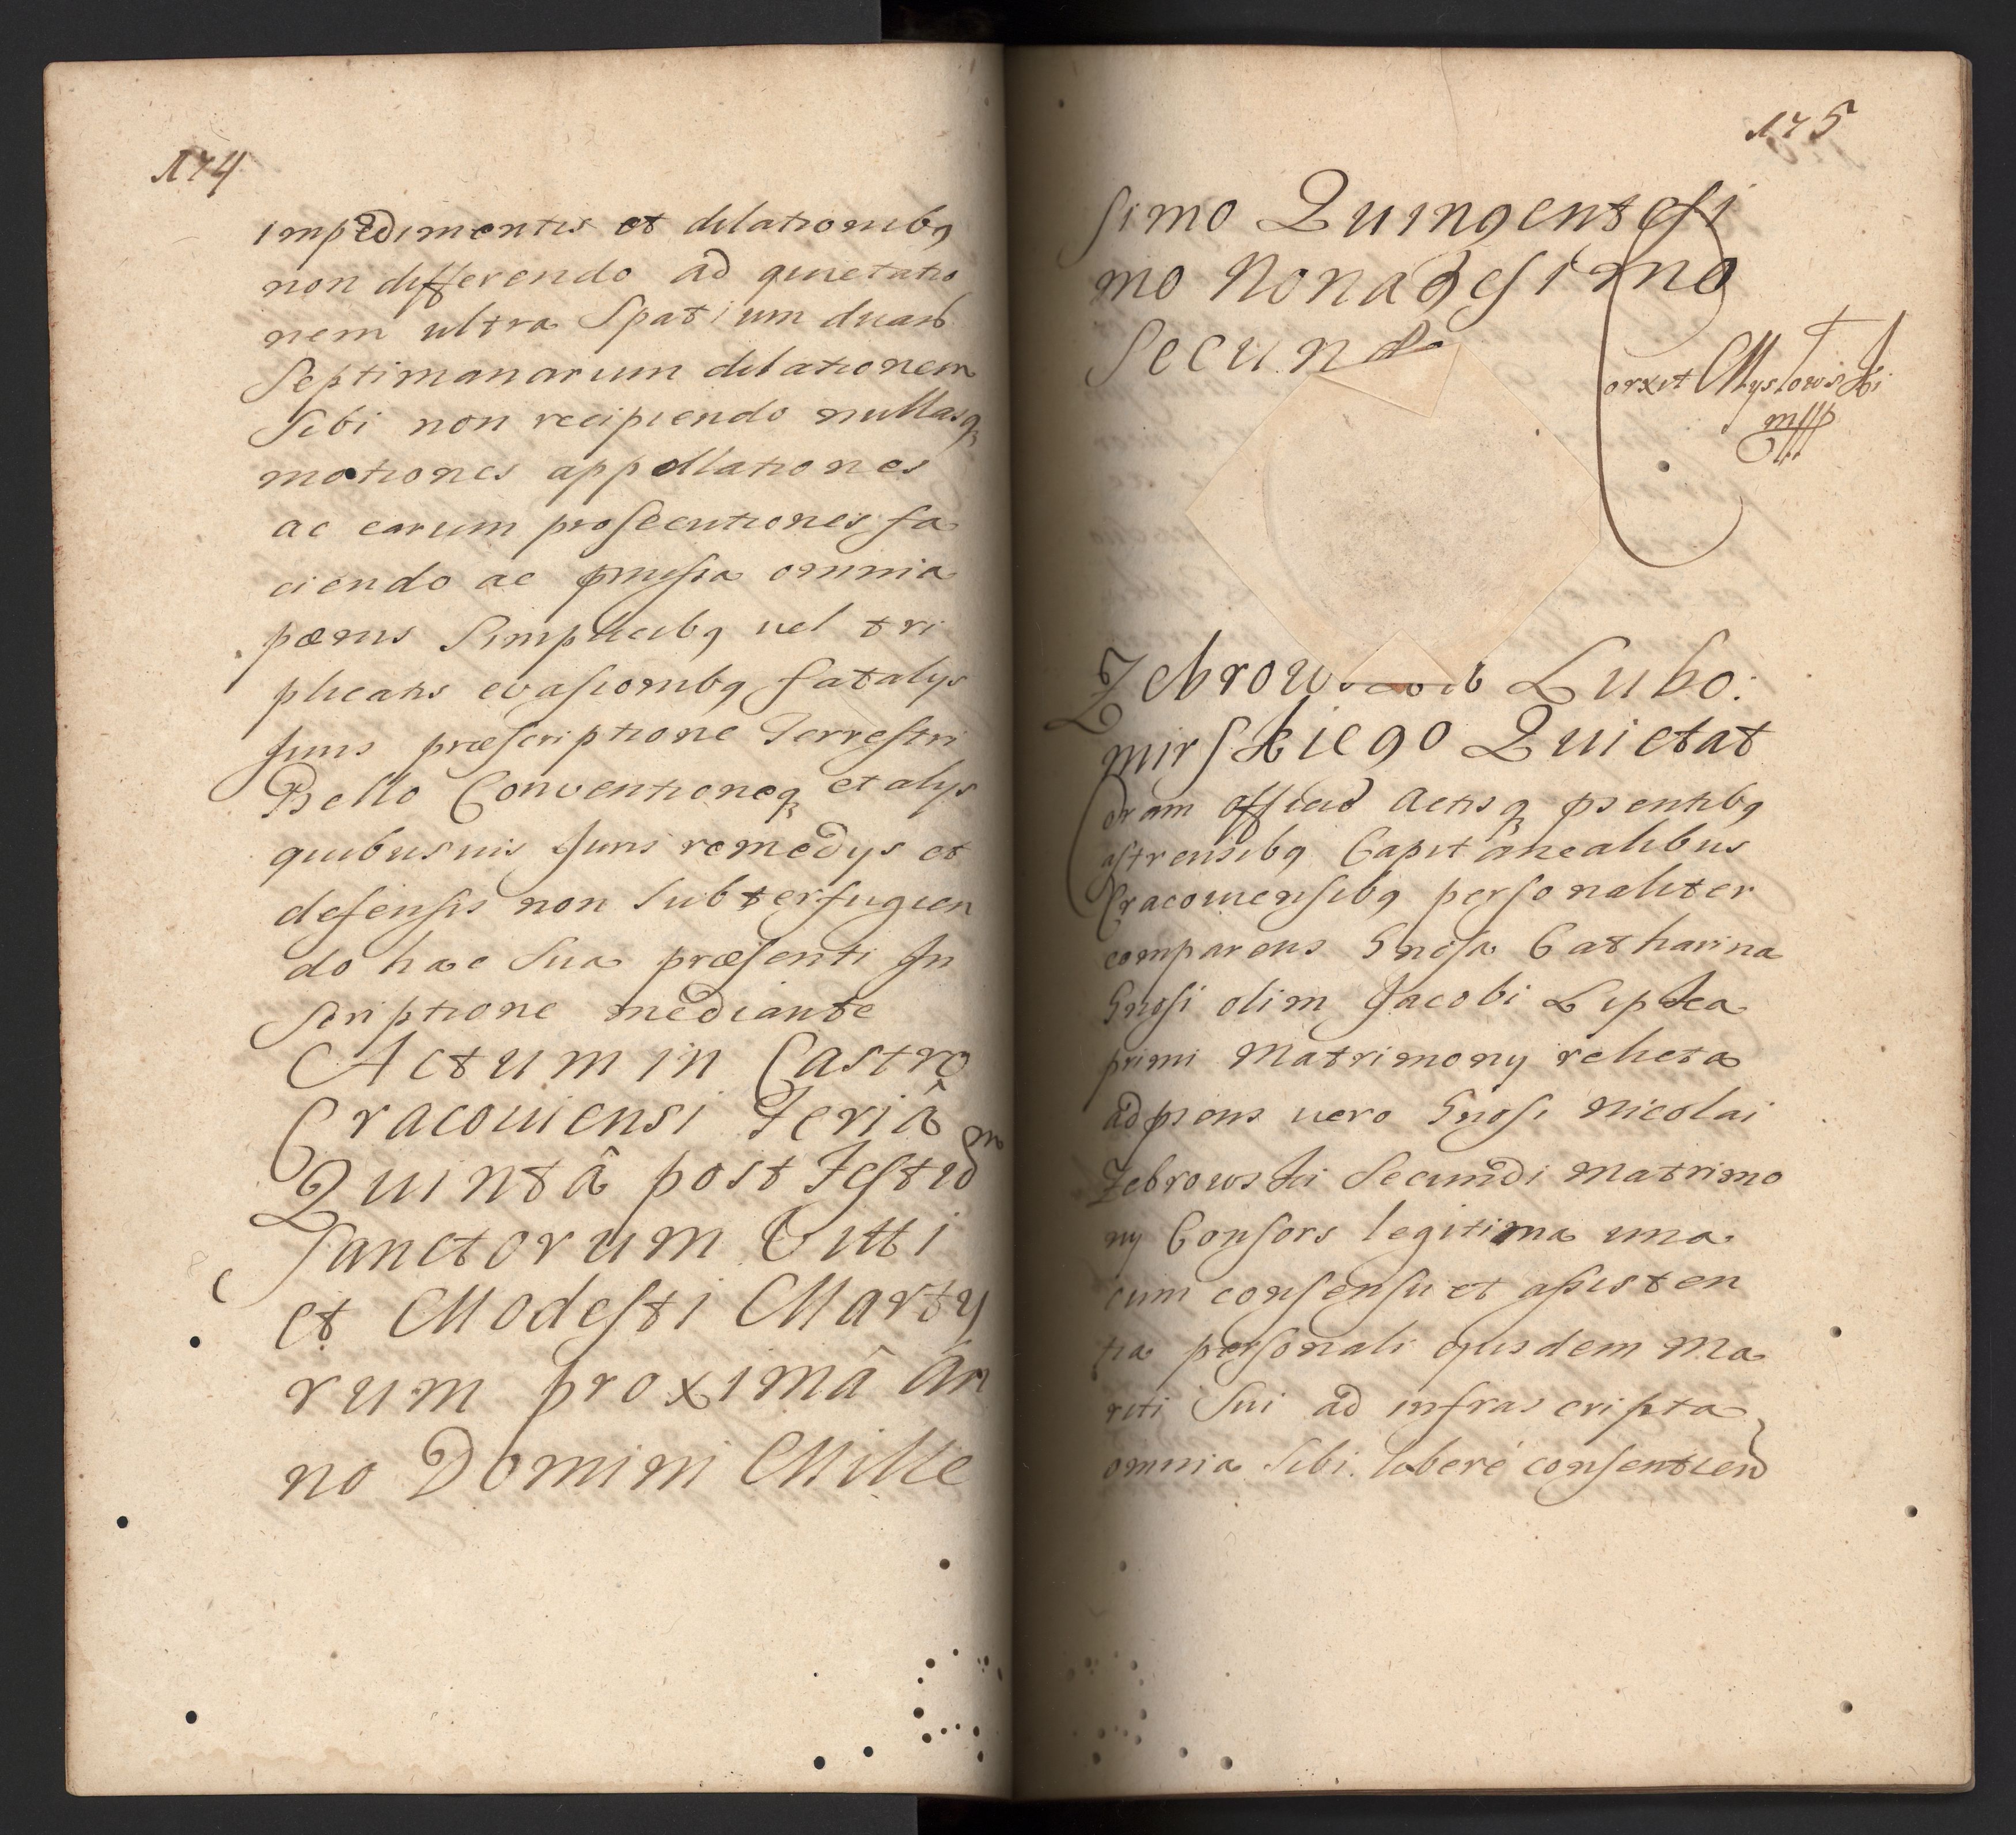 174
impedimentis et dilationibq
non differendo ad quietatio
nem ultra Spatium duar
Septimanarum dilationem
Sibi non recipiendo nullasq
motiones appellationes
ac earum prosecutiones fa
ciendo ac pmissa omnia
pœnis Simplicibq uel tri
plicatis evasionibq fatalys
Juris præscriptione Terrestri
Bello Conventioneq et alys
quibusuis Juris remedys et
defensis non Subterfugien
do hac Sua præsenti In
scriptione mediante
Actum in Castro
Cracouiensi Feriâ
Quintâ post Festum
Sanctorum Vitti
et Modesti Marty
rum proximâ An
no Domini Mille
175
simo Quingentesi
mo Nonagesimo
Secundo
orxit Mysłowski
mpp
Zebrow Lubo:
mirskiego Quietat
Coram officio Actisq psentibq
astrensibq Capitanealibus
Cracouiensibq personaliter
comparens Gnosa Catharina
Gnosi olim Jacobi Lipka
primi Matrimony relicta
ad psens uero Gnosi Nicolai
Zebrowski Secundi Matrimo
ny Consors legitima una
cum consensu et assisten
tia personali eiusdem Ma
riti Sui ad infrascripta
omnia Sibi liberè consentien